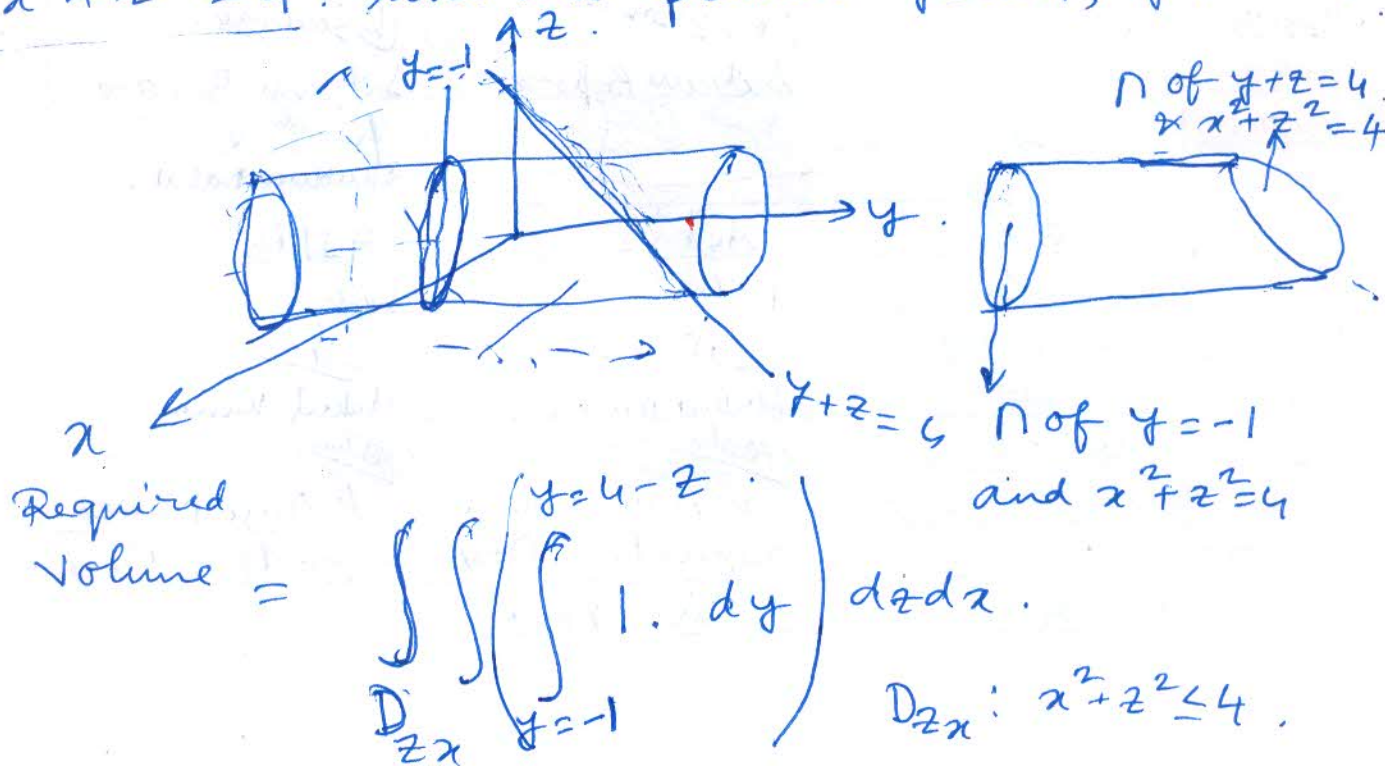 z.
y=-1
∩ of y+z=4
& x²+z²=4
y.
x
y+z=4
∩ of y=-1
and x²+z²=4
Required
Volume = ∫∫_{D_{zx}} ( ∫_{y=-1}^{y=4-z} 1. dy ) dzdx.
D_{zx} : x²+z²≤4.